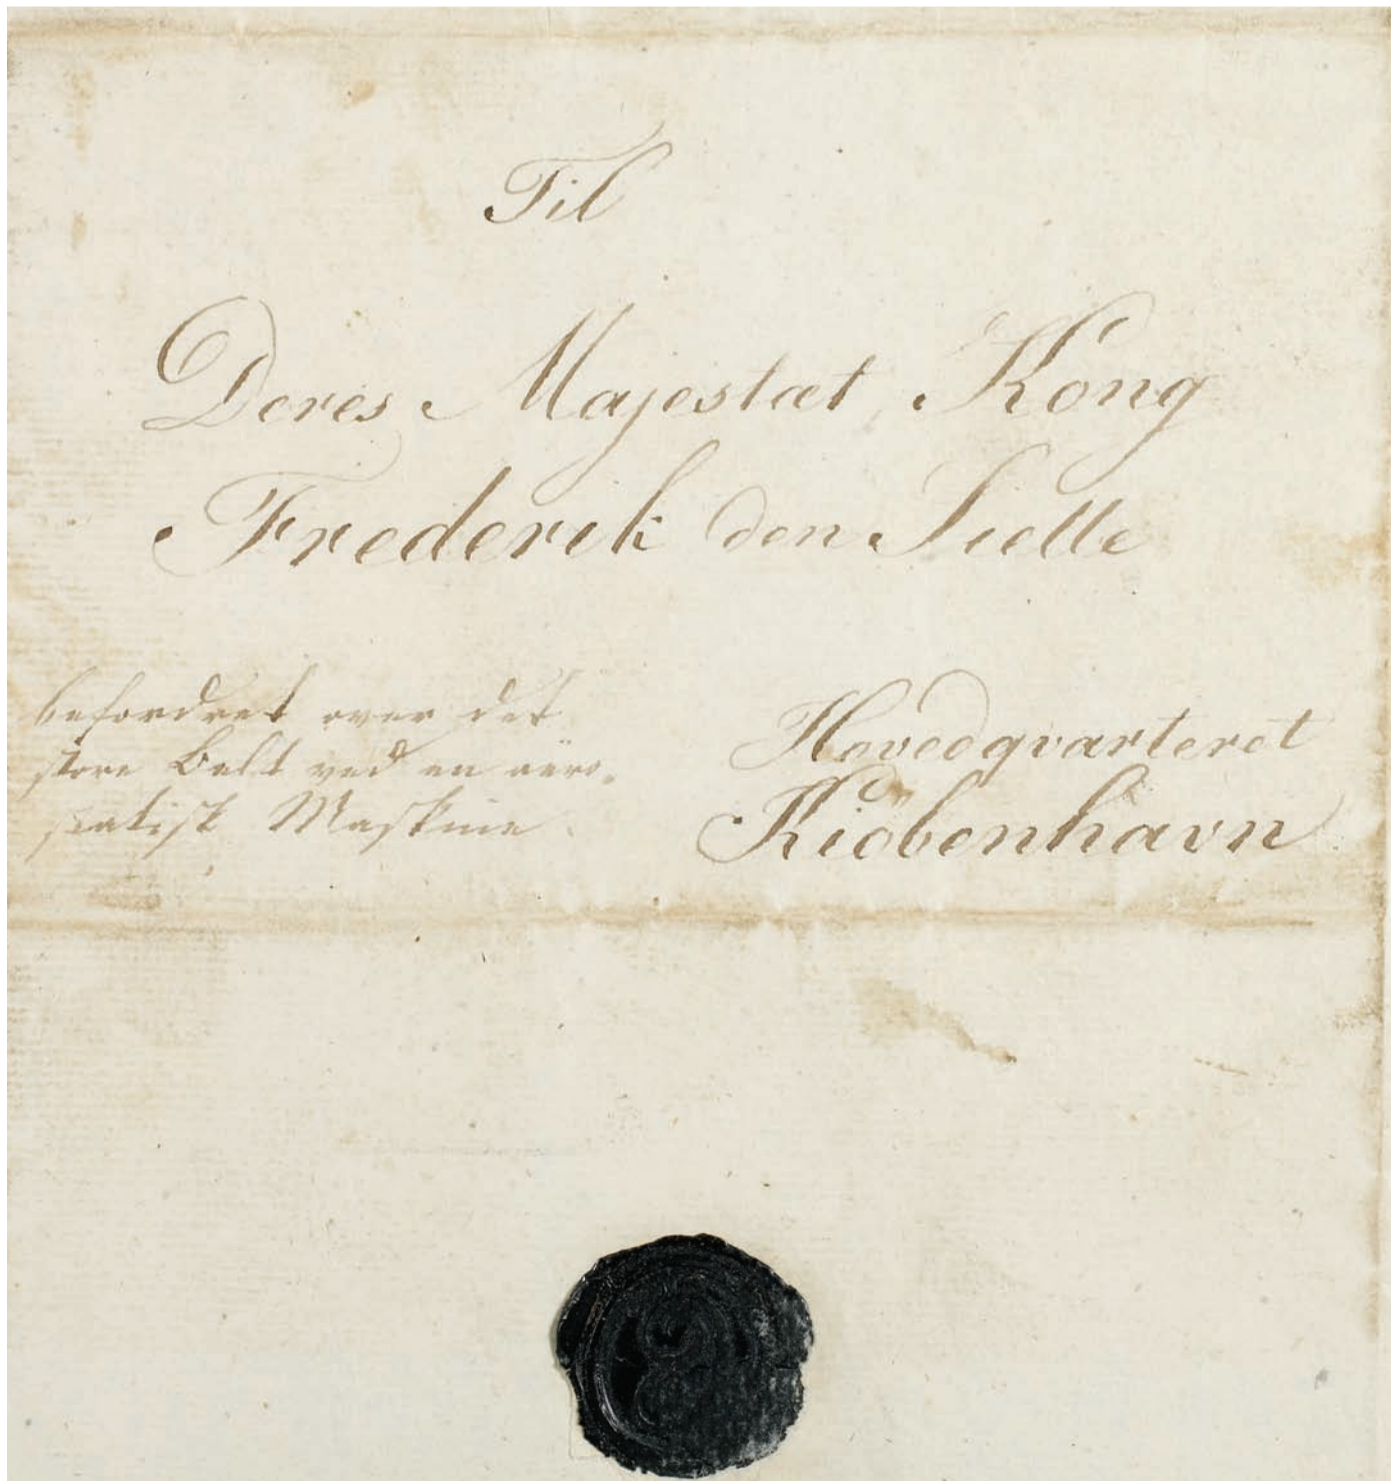 Til
Deres Majestæt Kong
Frederik den Siette
befordret over det
store Belt ved en aëro-
statisk Maskine
Hovedqvarteret
Kiöbenhavn